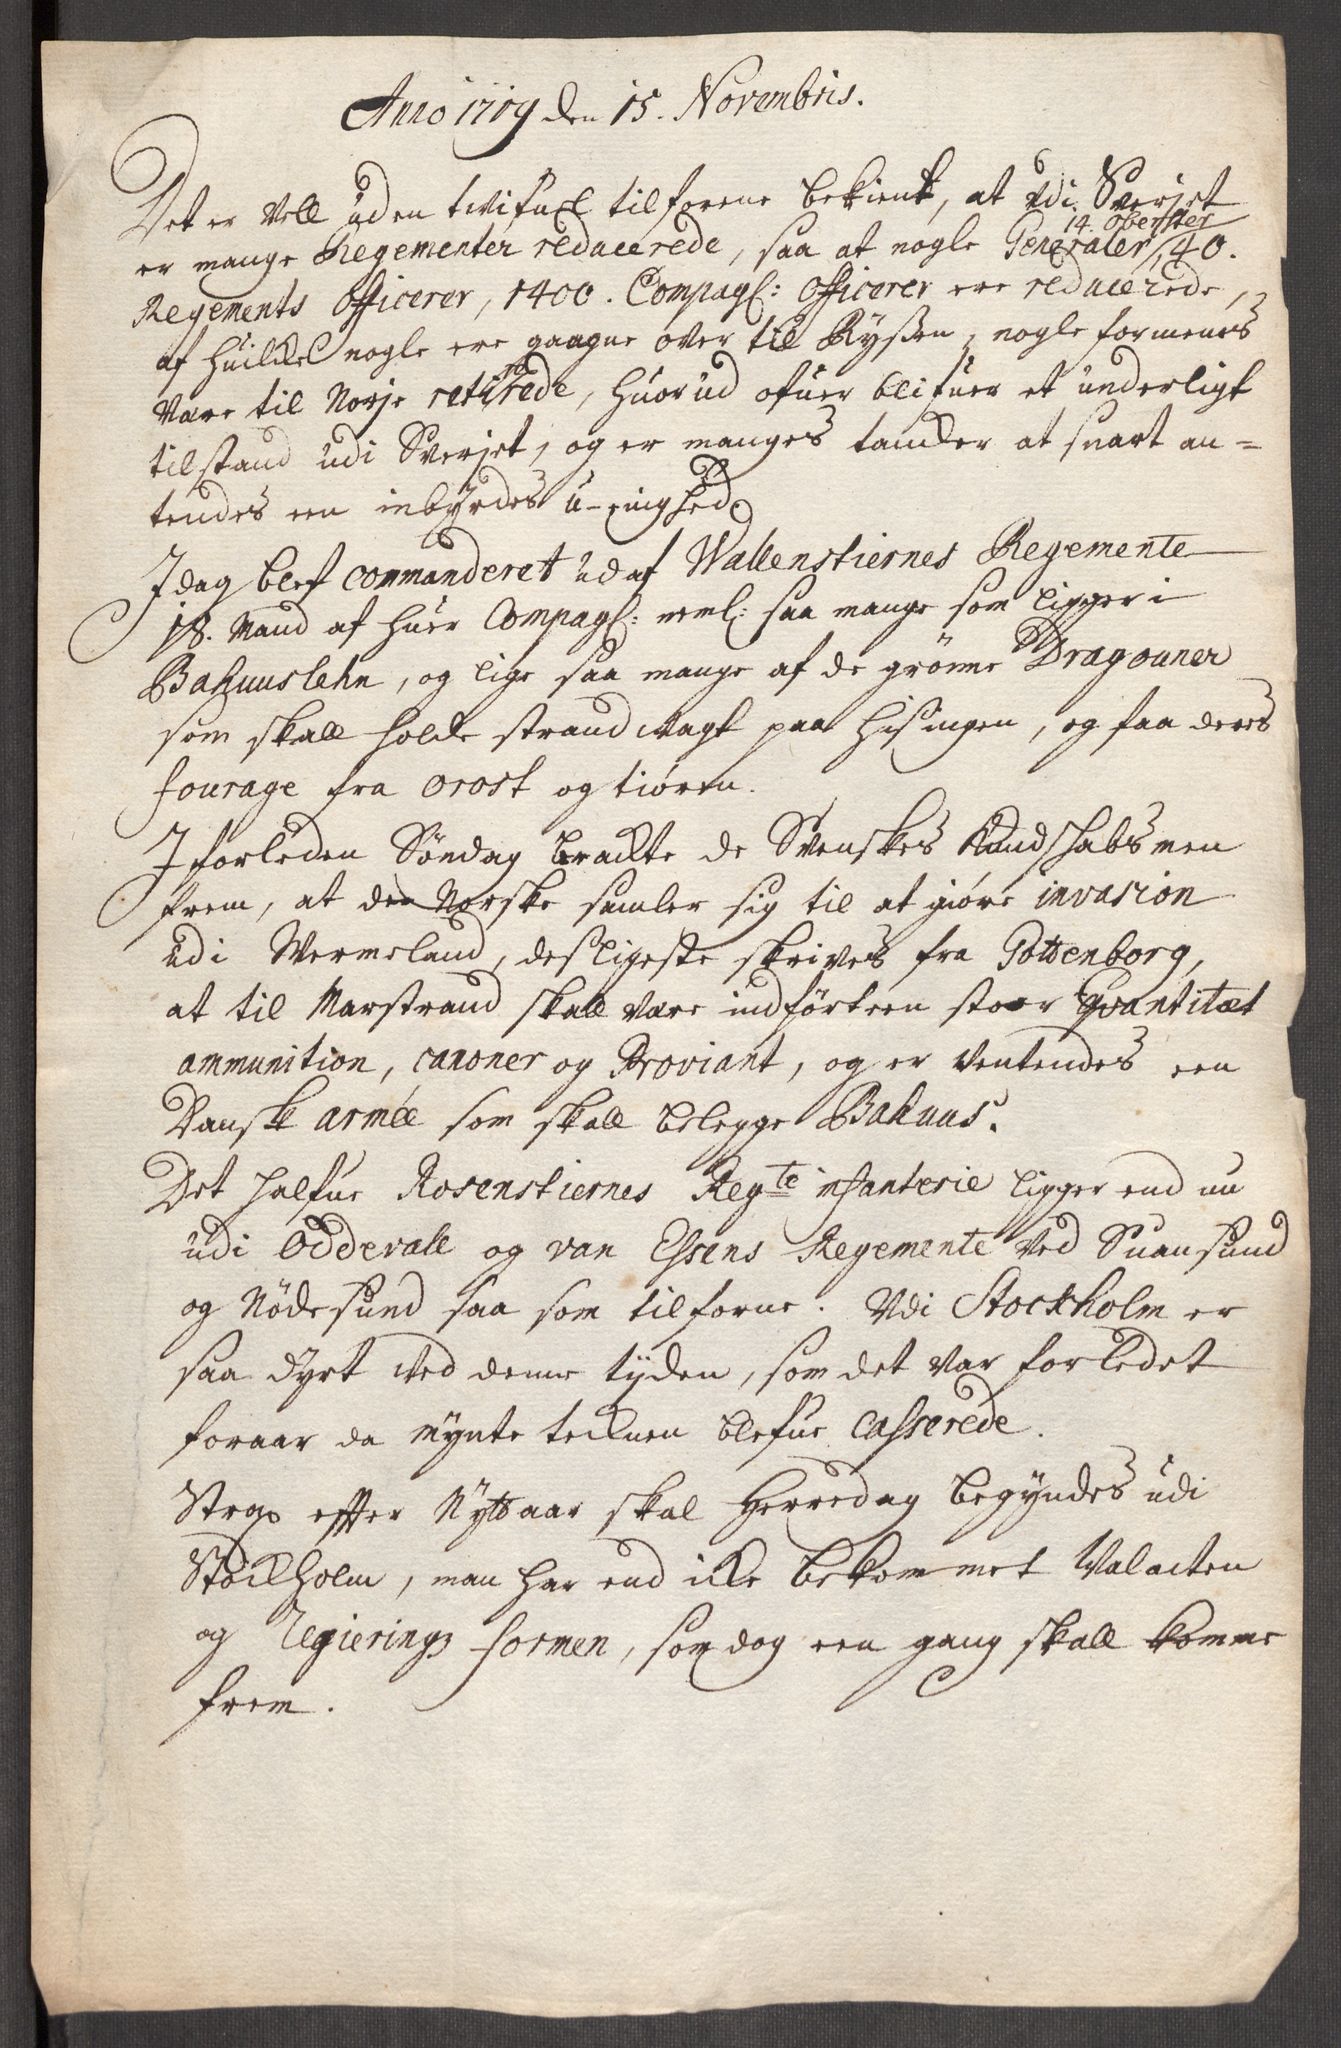 Anno 1719 den 15. Novembris.
Det er vell uden twifuel tilforene bekient, at udi Sverjet
14. Oberster
er mange Regementer reducerede, saa at nogle Generaler, 40.
Regements Officerer, 1400. Compagl: Officerer ere reducerede,
af huilke nogle ere gaagne over til Ryssen, nogle formenes
være til Norje retirerede, huorud ofuer blifuer et underligt
tilstand udi Sverjet, og er manges tancker at snart an-
tendes een inbyrdes u-einghed.
I dag blef commanderet ud af Wallenstiernes Regemente
18. Mand af huer Compagl: neml: saa mange som ligger i
Bahuuslehn, og lige saa mange af de grönne Dragouner
som skall holde strand wagt paa Hisingen, og faa deres
fourage fra Orost og tiören.
I forleden Söndag brackte de Svenskes Kundskabsmen
frem, at de Norske samler sig til at giöre invasion
udi Wermeland, desligeste skrives fra Gottenborg,
at til Marstrand skall være indfört een stoer Qvantitæt
ammunition, canoner og Proviant, og er ventendes een
Dansk armée som skall belegge Bahuus.
Det halfue Rosenstiernes Regte infanterie ligger end nu
udi Oddevall og van Essens Regemente ved Suansund
og Nödesund saa som tilforne. Udi Stockholm er
saa dyrt ved denne tijden, som det var forledet
foraar da mynte tecknen blefue casserede.
Strax effter Nyttaar skal Herredag begyndes udi
Stockholm, man har end icke bekommet Valackten
og Regierings formen, som dog een gang skall komme
frem.